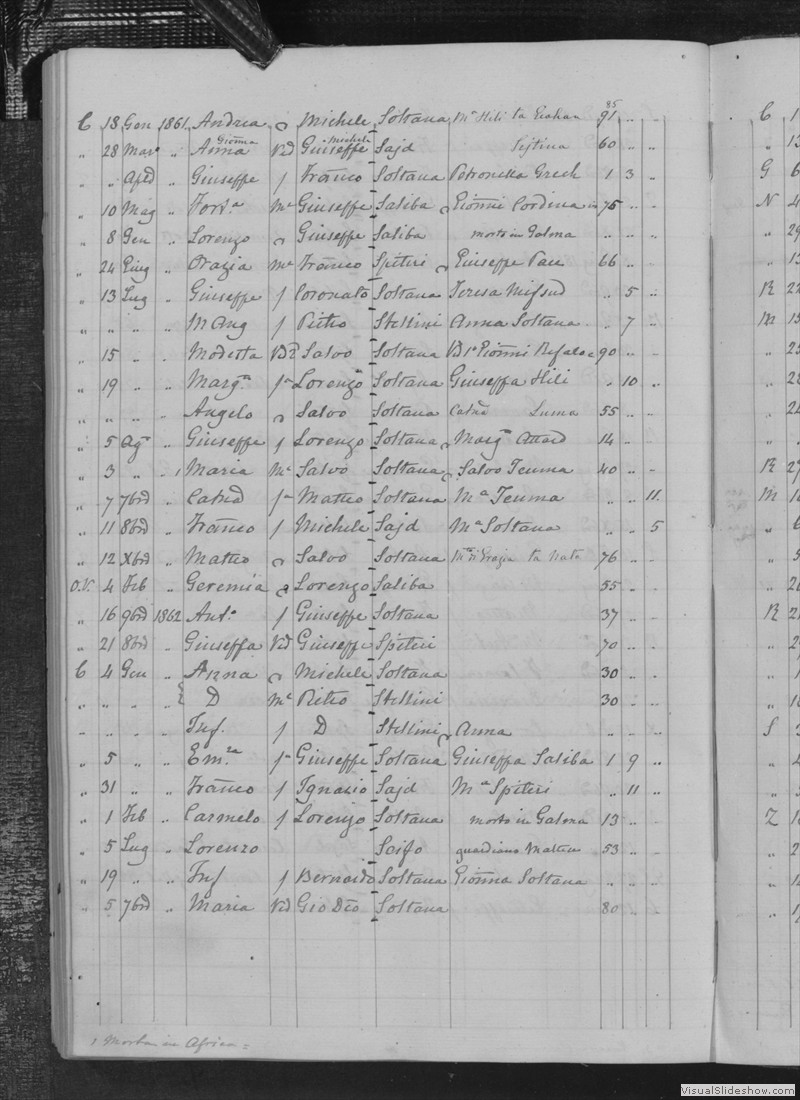 85
C 18 Gen 1861 Andrea Michele Soltana Mª Hili ta 91 „ „
Gionna Michele
„ 28 Mar „ Anna Vd Giuseppe Sajd Sejtina 60 „ „
„ „ Apl „ Giuseppe f Franco Soltana Petronella Grech 1 3 „
„ 10 Mag „ Forta Me Giuseppe Saliba Gionni Cordina 75 „ „
„ 8 Gen „ Lorenzo Giuseppe Saliba morto in Galma „ „ „
„ 24 Giug „ Orazia me Franco Spiteri Giuseppe Pace 66 „ „
„ 13 Lug „ Giuseppe f Coronato Soltana Teresa Mifsud „ 5 „
„ „ „ „ M Ang f Pietro Stellini Anna Soltana „ 7 „
„ 15 „ „ Modesta Vd Salvo Soltana Gionni Refalo 90 „ „
„ 19 „ „ Marga f Lorenzo Soltana Giuseppa Hili „ 10 „
„ „ „ Angelo Salvo Soltana Catna 55 „ „
„ 5 Ago „ Giuseppe f Lorenzo Soltana Marga Attard 14 „ „
„ 3 „ „ 1 Maria Me Salvo Soltana Salvo Teuma 40 „ -
„ 7 7bre „ Catna f Matteo Soltana Mª Teuma „ „ 11.
„ 11 8bre „ Franco f Michele Sajd Mª Soltana „ „ 5
„ 12 Xbre „ Matteo Salvo Soltana Grazia ta 76 „ „
O.V. 4 Feb „ Geremia Lorenzo Saliba 55 „ „
„ 16 9bre 1862 Anto f Giuseppe Soltana 37 „ „
„ 21 8bre „ Giuseppa Vd Giuseppe Spiteri 70 „ -
C 4 Gen „ Anna Michele Soltana 30 „ -
„ „ „ „ D Me Pietro Stellini 30 „ -
„ „ „ Inf. f D Stellini Anna „ „ „
„ 5 „ „ Emra f Giuseppe Soltana Giuseppa Saliba 1 9 „
„ 31 „ „ Franco f Ignazio Sajd Mª Spiteri „ 11 „
„ 1 Feb „ Carmelo f Lorenzo Soltana morto in Galma 13 „ -
„ 5 Lug „ Lorenzo guardiano Matteo 53 „ „
„ 19 „ „ Inf f Bernardo Soltana Gionna Soltana „ „ „
„ 5 7bre „ Maria Vd Gio Dto Soltana 80 „ „
1 Morta in Africa =
C 1
„ 13
G 6
N 4
„ 29
„ 13
R 22
M 15
„ 25
„ 28
„ 24
R 27
M 10
„ 6
„ 5
„ 20
R 21
S 3
Z 10
VisualSlideshow.com